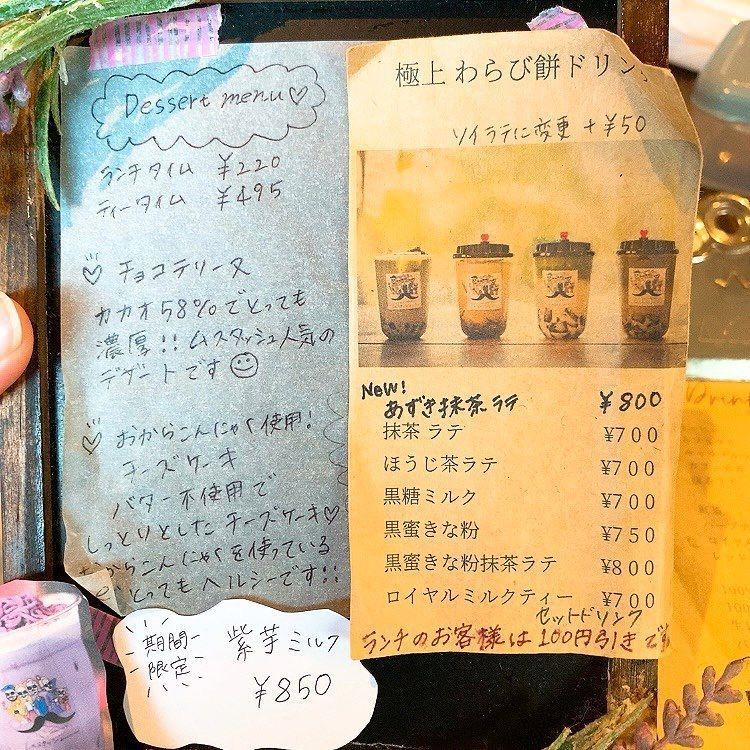 Dessert menu♡
ランチタイム ¥220
ティータイム ¥495
♡ チョコテリーヌ
カカオ58%でとっても
濃厚!! ムスタッシュ人気の
デザートです
♡ おからこんにゃく使用!
チーズケーキ
バター不使用で
しっとりとしたチーズケーキ♡
おからこんにゃくを使っている
とってもヘルシーです!!
期間
限定
紫芋ミルク
¥850
極上 わらび餅ドリン
ソイラテに変更 +¥50
New!
あずき抹茶ラテ ¥800
抹茶 ラテ ¥700
ほうじ茶ラテ ¥700
黒糖ミルク ¥700
黒蜜きな粉 ¥750
黒蜜きな粉抹茶ラテ ¥800
ロイヤルミルクティー ¥700
セットドリンク
ランチのお客様は100円引きです